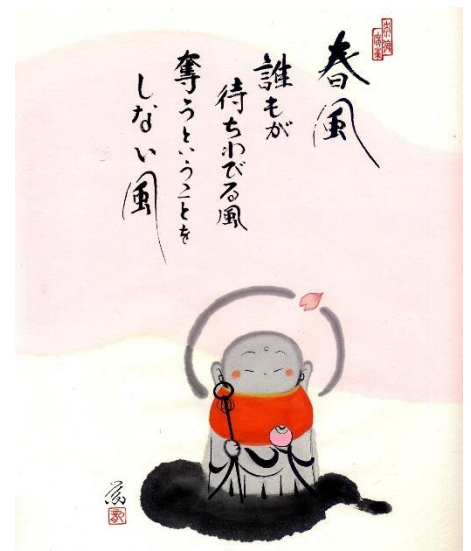 春風
誰もが
待ちわびる風
奪うということを
しない風